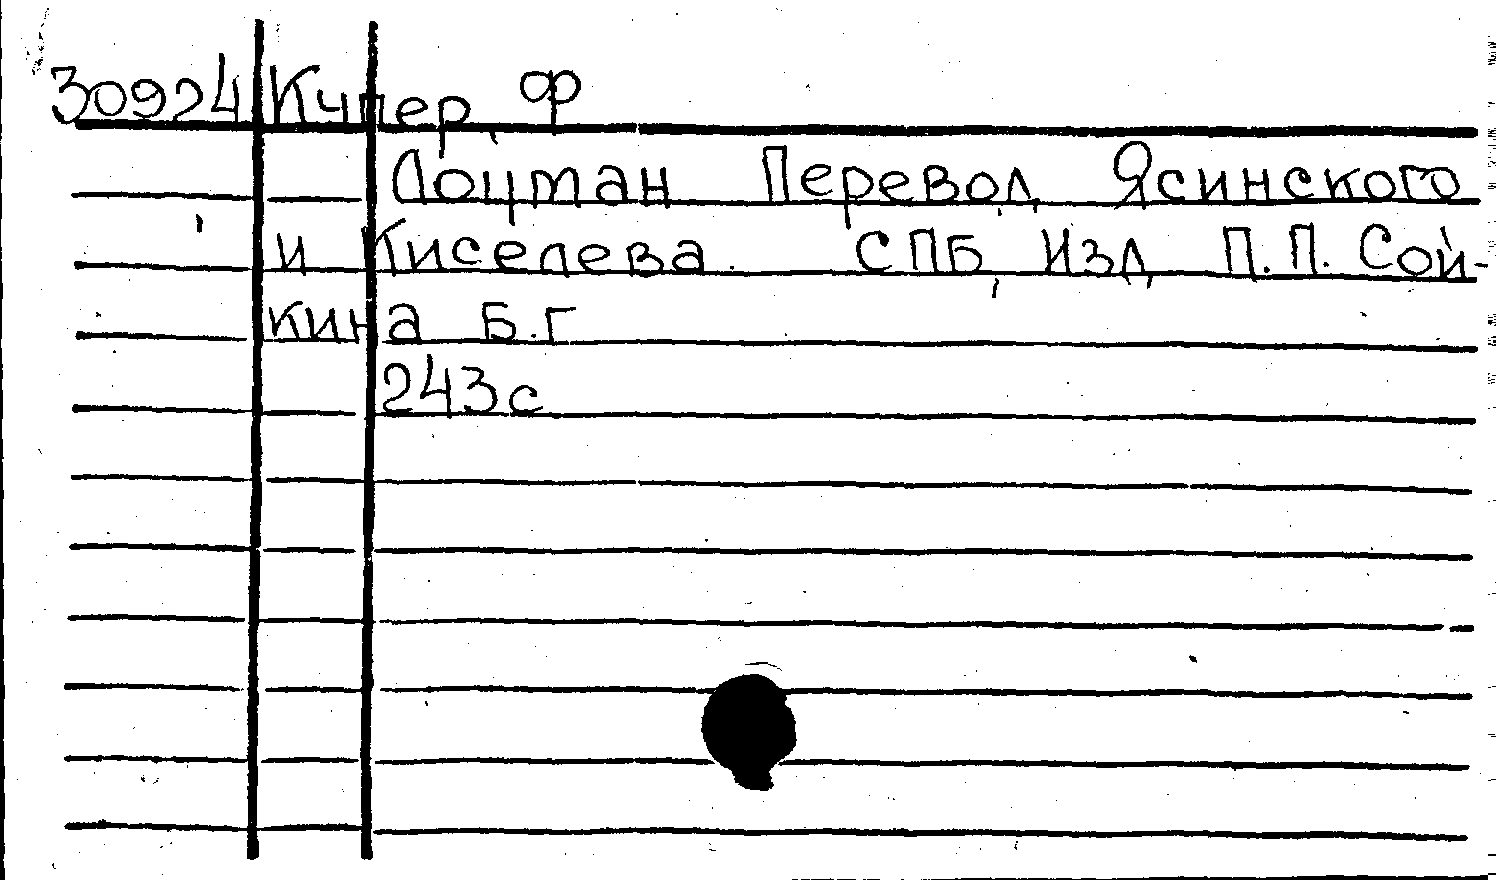 30924 Купер, Ф
Лоцман Перевод, Ясинского
и Киселева. СПБ, Изд, П.П. Сой-
кина Б.г
243с